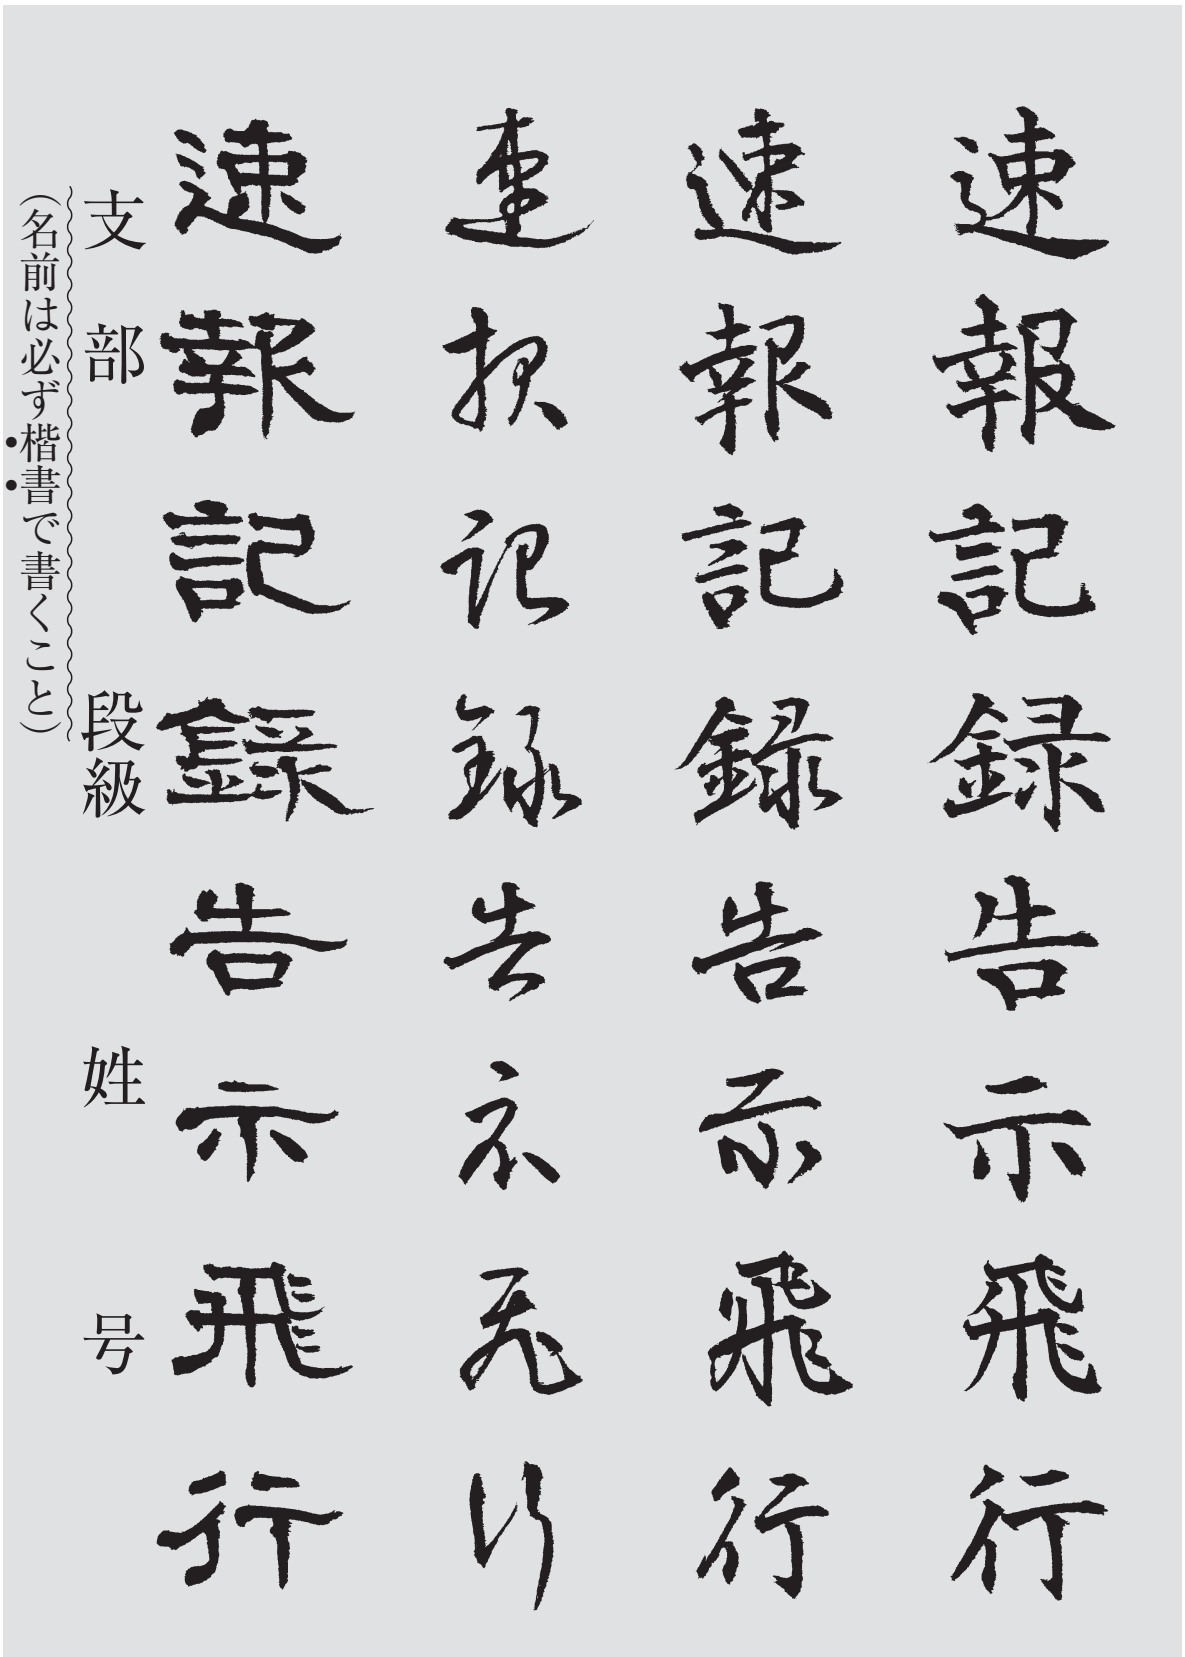 速報記録告示飛行
速報記録告示飛行
速報記録告示飛行
速報記録告示飛行
支部 段級 姓 号
(名前は必ず楷書で書くこと)